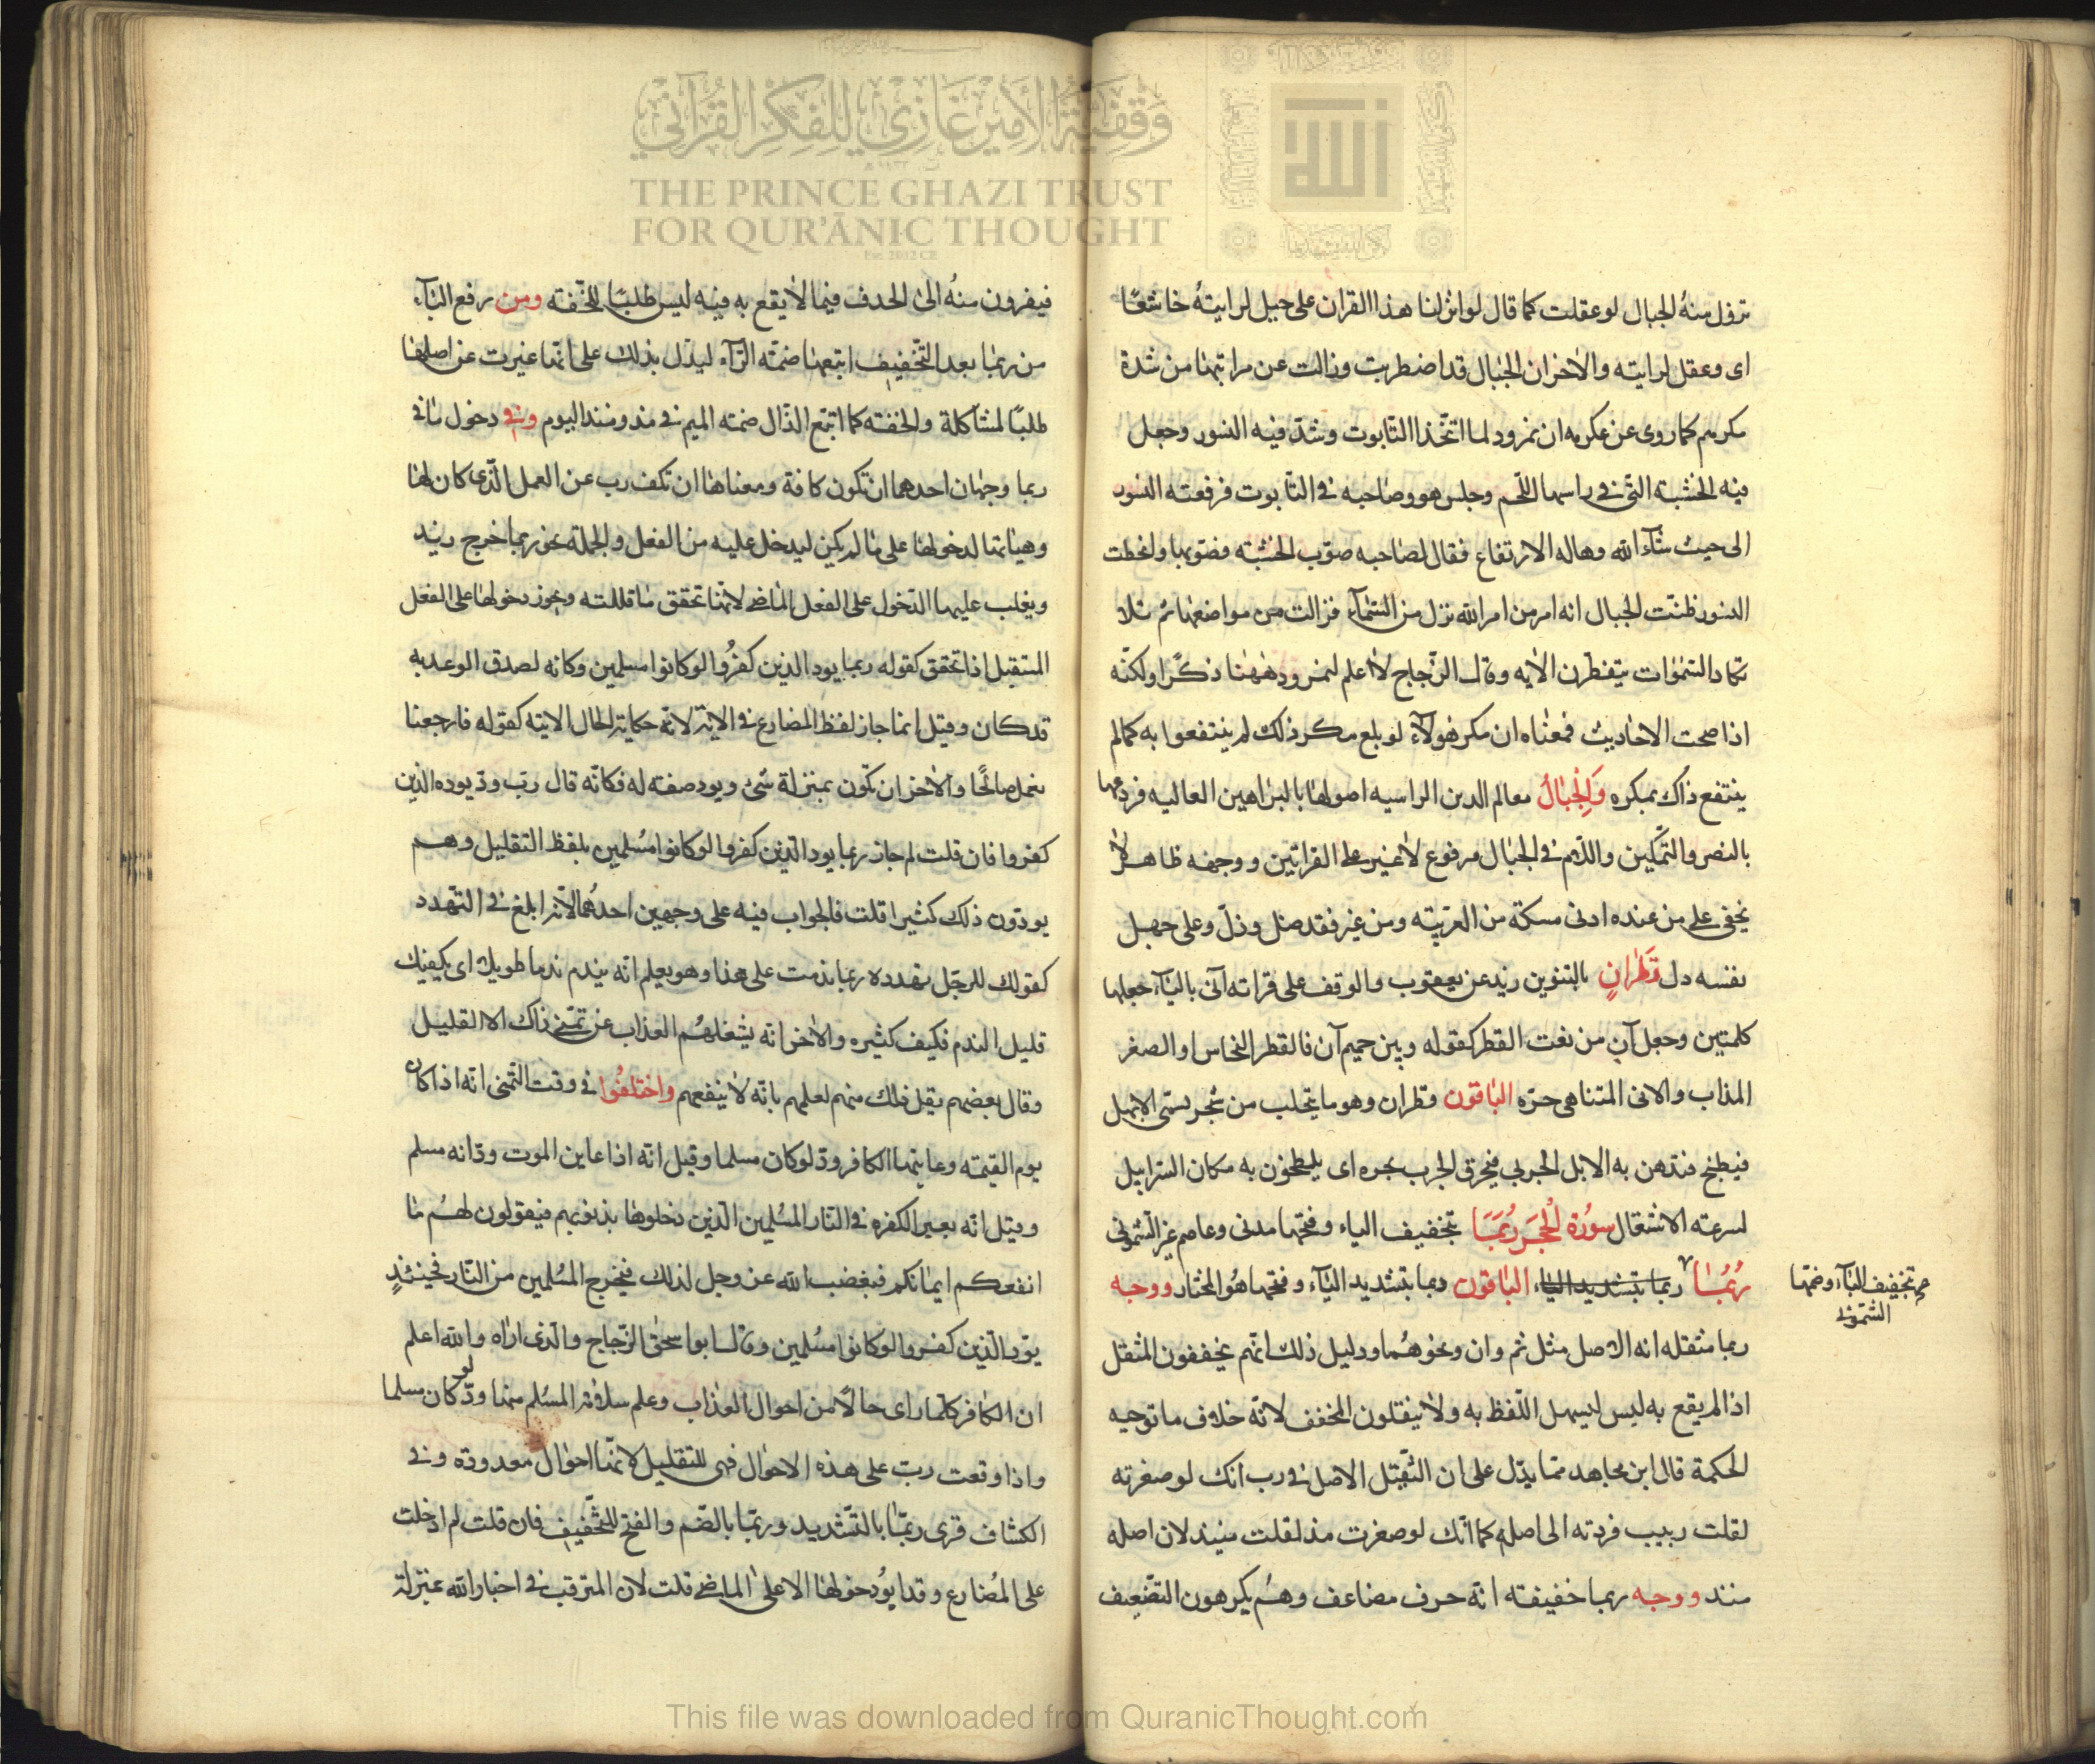 وقفية الأمير غازي للفكر القرآني
THE PRINCE GHAZI TRUST
FOR QUR'ĀNIC THOUGHT
Est. 2012 CE
الله
تزول منهُ الجبال لو عقلت كما قال لو انزلنا هذا القران على جبل لرايتهُ خاشعًا
اى وعقل لرايته والاخر ان الجبال قد اضطربت وزالت عن مراتبها من شدة
مكرهم كما روى عن عكرمه ان نمرود لما اتّخذ التابوت وشدّ فيه النسور وجعل
فيه الخشبة التى فى راسها اللّحم وجلس هو وصاحبه فى التابوت فرفعته النسور
الى حيث شآء الله وهاله الارتفاع فقال لصاحبه صوّب الخشبه فصوبها وانحطت
النسور ظنّت الجبال انه امر من امر الله نزل من السّمآء فزالت من مواضعها ثم تلا
تكاد السّموات يتفطرن الايه وقال الزّجاج لا اعلم لنمرود ههنا ذكرًا ولكنّه
اذا صحت الاحاديث فمعناه ان مكر هولآء لو بلغ مكر ذلك لم ينتفعوا به كما لم
ينتفع ذاك بمكره وَالْجِبَالُ معالم الدين الراسيه اصولها بالبراهين العاليه فروعها
بالنصر والتّمكين واللّام فى الجبال مرفوع لا غير على القراتين ووجهه ظاهر لا
يخفى على من عنده ادنى مسكة من العربيّته ومن غير فقد ضل وذلّ وعلى جهل
نفسه دل قَطْرٍاٰنٍ بالتنوين زيد عن يعقوب والوقف على قراته آنى باليآء جعلها
كلمتين وجعل آنٍ من نعت القطر كقوله وبين حميم آن فالقطر النحاس او الصفر
المذاب والانى المتناهى حرّه الباقون قطران وهو ما يتحلب من شجر يسمّى الابهل
فيطبخ فتدهن به الابل الجربى فيحرق الجرب بحره اى يلطخون به مكان السرابيل
لسرعته الاشتعال سورة الْحِجَر رُبَمَا بتخفيف الباء وفتحها مدنى وعاصم غير الشمونى
رُبُمَا ربما بتشديد الباء الباقون ربما بتشديد البآء وفتحها هُو المختار ووجه
بتخفيف البآء وضمّها
الشمّونى
ربما مثقله انه الاصل مثل ثم وان ونحوهُما ودليل ذلك انّهم يخففون المثقل
اذا لم يقع به لبس ليسهل اللّفظ به ولا يثقلون المخفف لانّه خلاف ما توجبه
الحكمة قال ابن مجاهد ممّا يدّل على ان الثّقيل الاصل فى رب انّك لو صغرته
لقلت ربيب فردته الى اصله كما انّك لو صغرت مذ لقلت منيذ لان اصله
منذ ووجه ربما خفيفته انّه حرف مضاعف وهُم يكرهون التضعيف
فيفرون منهُ الى الحذف فيما لا يقع به فيه لبس طلبًا للخّفته ومن رفع البآء
من ربما بعد التّخفيف ابتعها ضمّته الرّآء ليدّل بذلك على انّها غيرت عن اصلها
طلبًا لمشاكلة والخفته كما اتبع الذّال ضمته الميم فى مذ ومنذ اليوم وفى دخول ما فى
ربما وجهان احدهما ان تكون كافة ومعناها ان تكف رب عن العمل الّذى كان لها
وهياتها لدخولها على ما لم يكن ليدخل عليه من الفعل والجملة نحو ربما خرج زيد
ويغلب عليها الدّخول على الفعل الماضى لانّها تحقق ما قللته ويجوز دخولها على الفعل
المستقبل اذا تحقق كقوله ربما يود الذين كفرُوا لو كانوا مسلمين وكانه لصدق الوعد به
قد كان وقيل انما جاز لفظ المضارع فى الايته لانّه حكاية الحال الاتيه كقوله فارجعنا
نعمل صالحًا والاخر ان تكون بمنزلة شئ ويود صفته له فكانّه قال ربّ ودّ يوده الذين
كفروا فان قلت لم جاز ربما يود الّذين كفروا لو كانوا مُسلمين بلفظ التقليل وهم
يودّون ذلك كثيرا قلت فالجواب فيه على وجهين احدهُما انّه ابلغ فى التّهدد
كقولك للرجّل تهدده ربما ندمت على هذا وهو يعلم انّه يندم ندما طويلا اى يكفيك
قليل الندم فكيف كثيره والاخر انّه يشغلهُم العذاب عن تمنّى ذاك الا القليل
وقال بعضهم يقل ذلك منهم لعلمهم بانّه لا ينفعهم واختلفُوا فى وقت التّمنى انّه اذا كان
يوم القيمته وعاينها الكافر ودّ لو كان مسلما وقيل انّه اذا عاين الموت ودّ انه مسلم
وقيل انّه يعير الكفره فى النّار المسُلمين الّذين دخلوها بذنوبهم فيقولون لهُم ما
انفعكم ايمانكم فيغضب الله عز وجل لذلك فيخرج المسُلمين من النّار فحينئذٍ
يوّد الّذين كفروا لو كانوا مُسلمين وقال ابو اسحٰق الزّجاج والّذى اراه والله اعلم
ان الكافر كلّما راى حالًا من احوال العذاب وعلم سلامة المسُلم منها ودّ لو كان مسلما
واذا وقعت ربّ على هذه الاحوال فهى للتقليل لانّها احوال معدودة وفى
الكشاف قرى ربّما بالتّشديد وربما بالضّم والفتح للتّخفيف فان قلت لم ادخلت
على المُضارع وقد ابوُا دخولها الا على الماضى قلت لان المترقب فى اخبار الله بمنزلة
This file was downloaded from QuranicThought.com